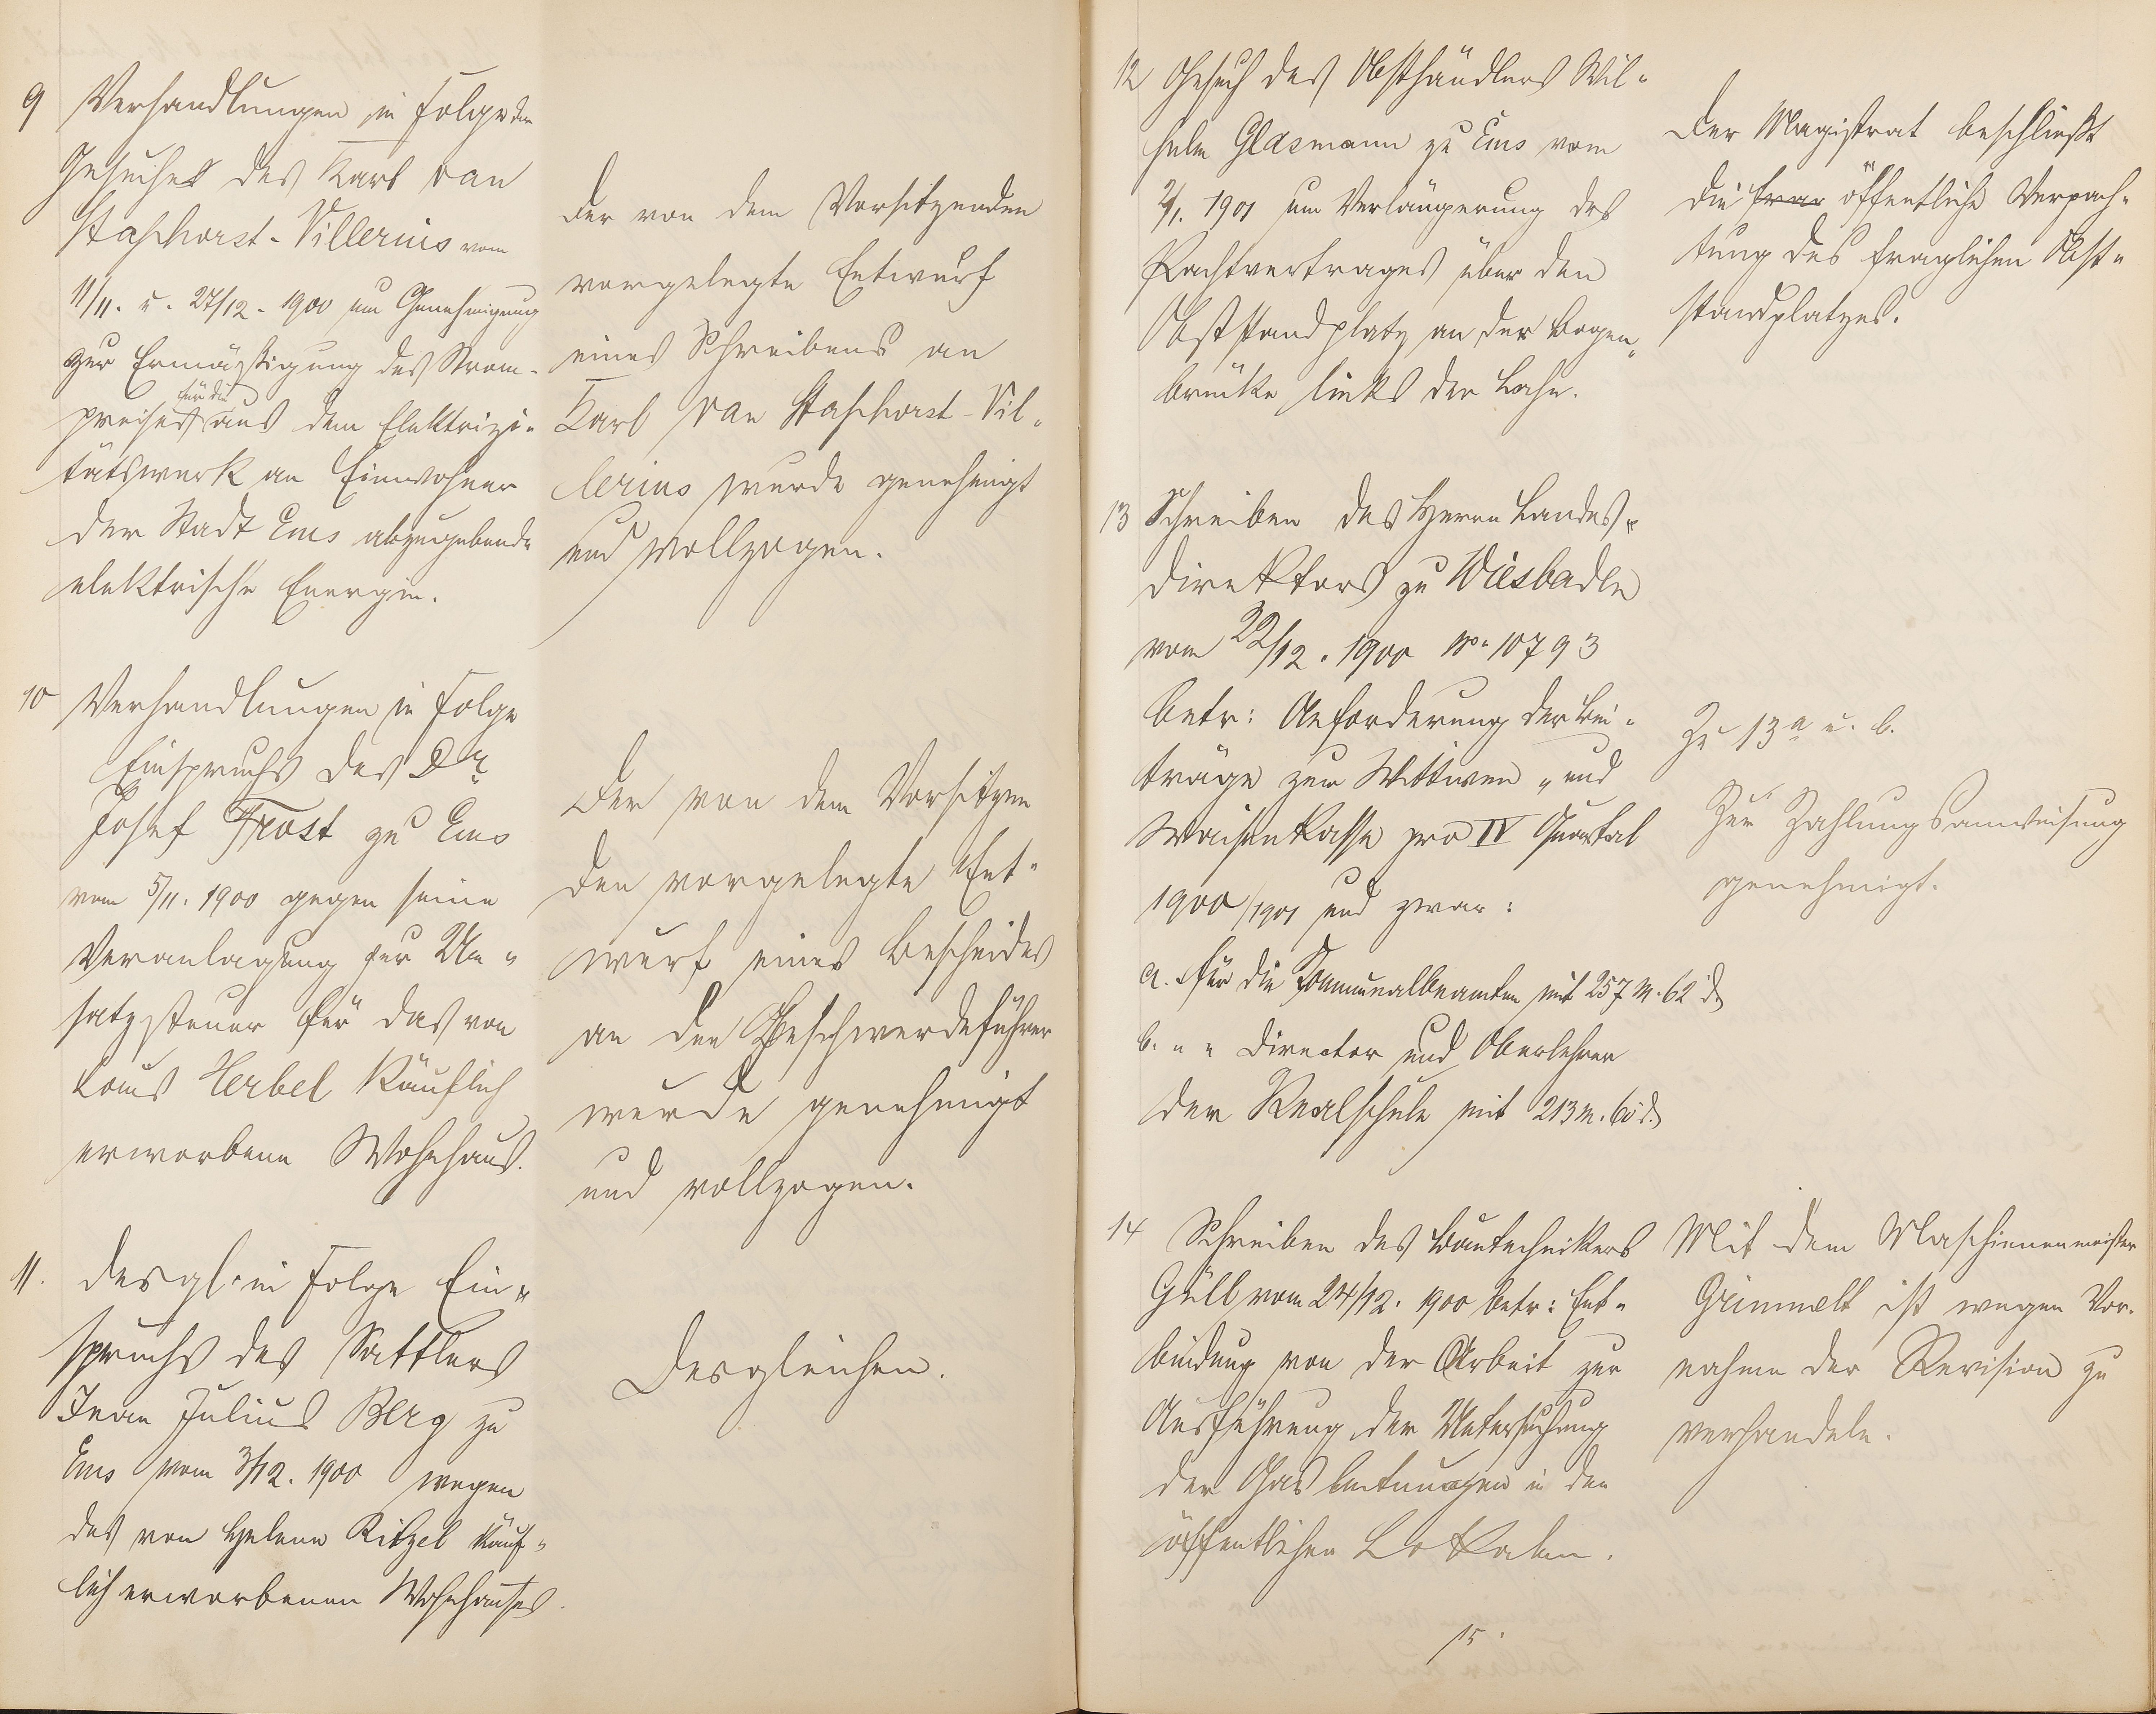 9 Verhandlungen in Folge der
Gesuches des Karl van
Staphorst-Villerius vom
11/11. u. 27/12. 1900 um Genehmigung
zur Ermäßigung des Strom-
preises für die aus dem Elektrizi-
tätswerk an Einwohner
der Stadt Ems abzugebende
elektrische Energie.
Der von dem Vorsitzenden
vorgelegte Entwurf
eines Schreibens an
Karl van Staphorst-Vil-
lerius wurde genehmigt
und vollzogen.
10 Verhandlungen in Folge
Einspruchs des Dr.
Josef Trost zu Ems
vom 5/11. 1900 gegen seine
Veranlagung zur Um-
satzsteuer für das von
Louis Herbel käuflich
erworbene Wohnhaus.
Der von dem Vorsitzen
den vorgelegte Ent-
wurf eines Bescheides
an den Beschwerdeführer
wurde genehmigt
und vollzogen.
11. desgl. in Folge Ein-
spruchs des Sattlers
Jean Julius Berg zu
Ems vom 3/12. 1900 wegen
des von Helene Ritzel käuf-
lich erworbenen Wohnhauses.
Desgleichen.
12 Gesuch des Obsthändlers Wil-
helm Glasmann zu Ems vom
2/1. 1901 um Verlängerung des
Pachtvertrages über den
Obststandplatz an der Bogen-
brücke links der Lahn.
Der Magistrat beschließt
die öffentliche Verpach-
tung des fraglichen Obst-
standplatzes.
13 Schreiben des Herrn Landes-
direktors zu Wiesbaden
vom 22/12. 1900 No. 10793
betr: Anforderung der Bei-
träge zur Wittwen- und
Waisenkasse pro IV Quartal
1900/1901 und zwar:
a. für die Kommunalbeamten mit 257 M. 62 d.
b. " " Director und Oberlehrer
der Realschule mit 213 M. 60 d.
Zu 13 a u. b.
Zur Zahlungsanweisung
genehmigt.
14 Schreiben des Bautechnikers
Güll vom 24/12. 1900 betr: Ent-
bindung von der Arbeit zur
Ausführung der Untersuchung
der Gasleitungen in den
öffentlichen Lokalen.
Mit dem Maschinenmeister
Grimmelt ist wegen Vor-
nahme der Revision zu
verhandeln.
15.